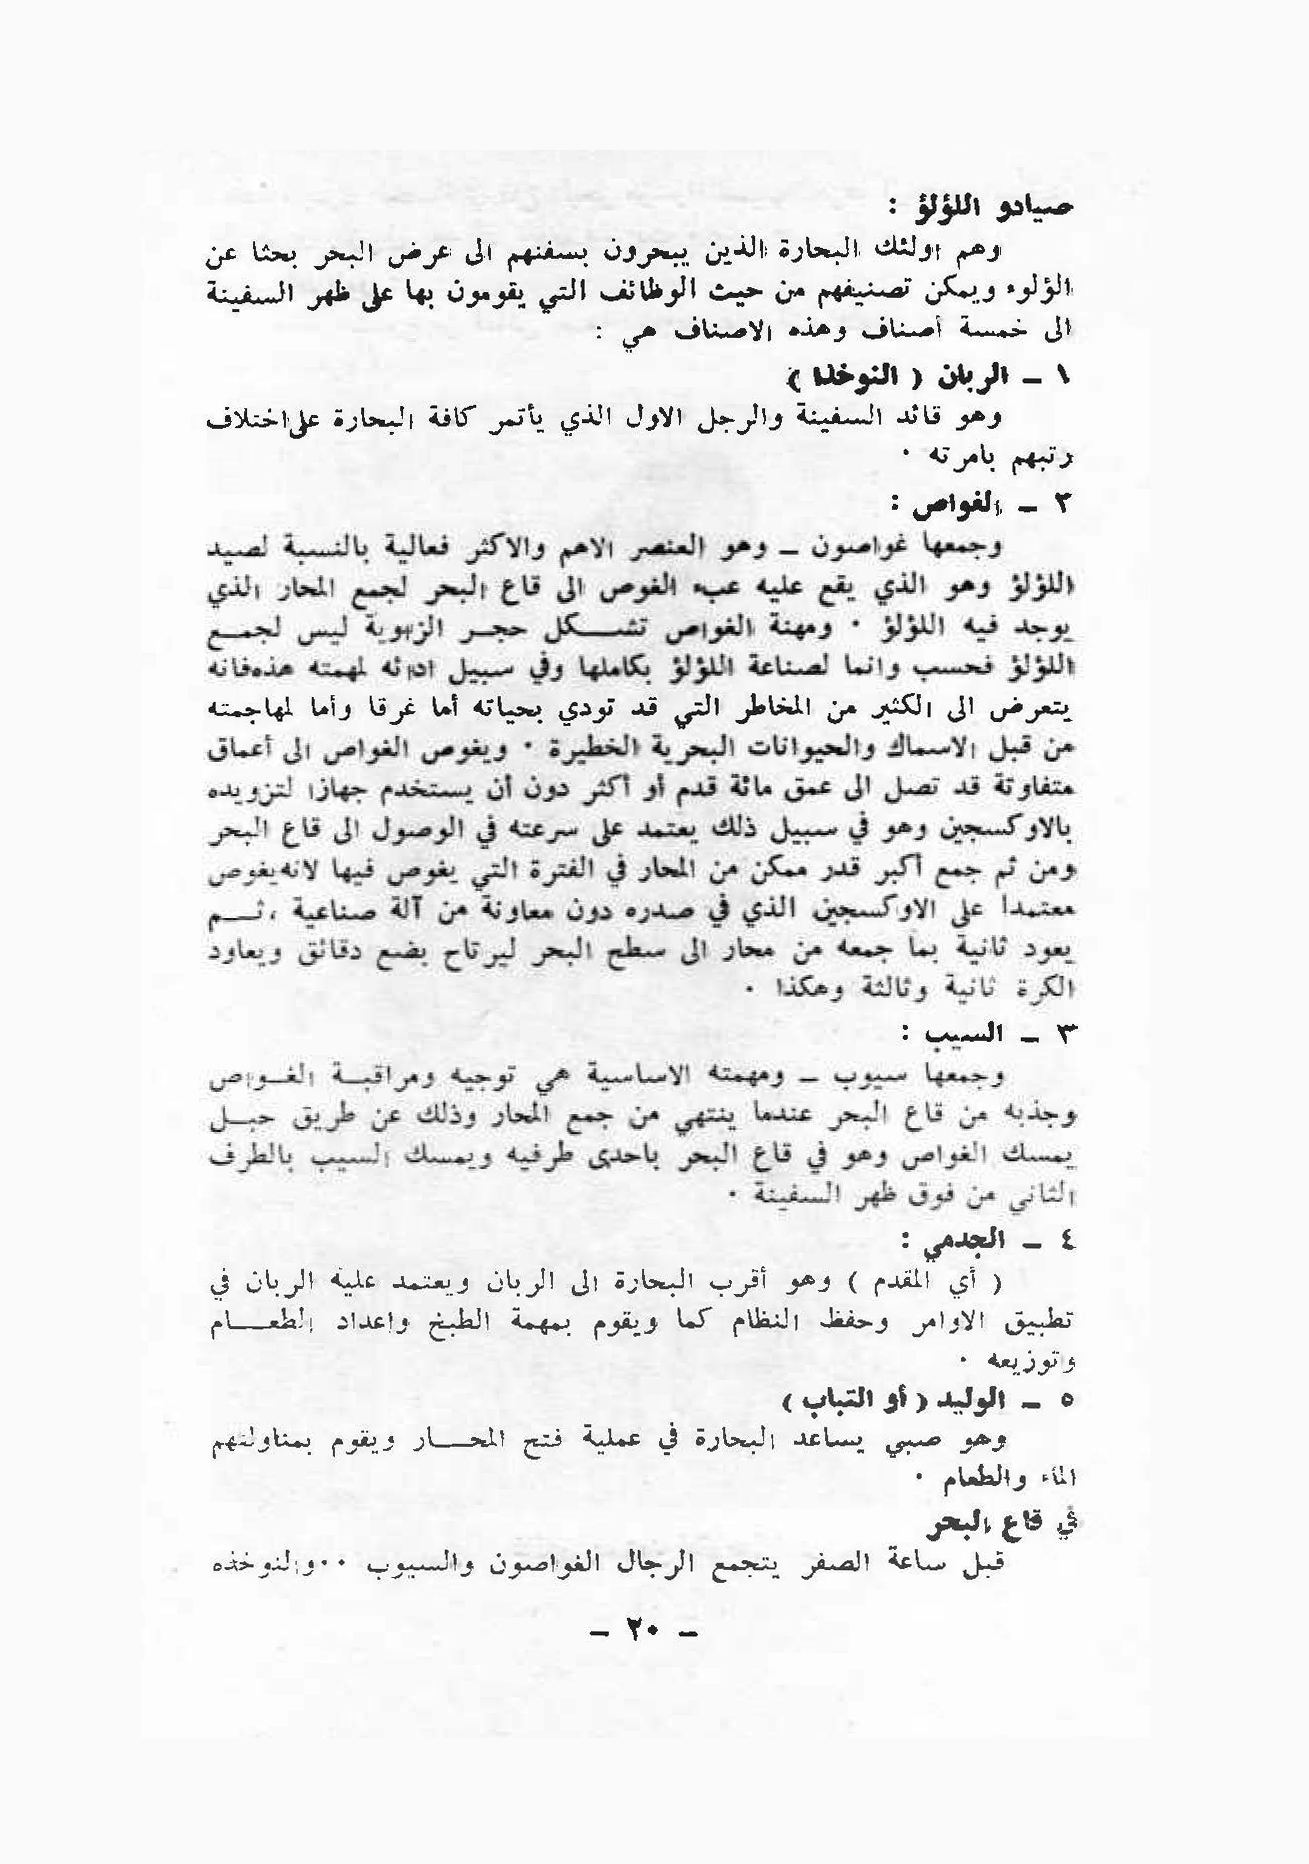 صيادو اللؤلؤ :
وهم اولئك البحارة الذين يبحرون بسفنهم الى عرض البحر بحثا عن
الؤلوء ويمكن تصنيفهم من حيث الوظائف التي يقومون بها على ظهر السفينة
الى خمسة أصناف وهذه الاصناف هي :
١ ـ الربان ( النوخذا )
وهو قائد السفينة والرجل الاول الذي يأتمر كافة البحارة على اختلاف
رتبهم بامرته ٠
٢ ـ الغواص :
وجمعها غواصون ـ وهو العنصر الاهم والاكثر فعالية بالنسبة لصيد
اللؤلؤ وهو الذي يقع عليه عبء الغوص الى قاع البحر لجمع المحار الذي
يوجد فيه اللؤلؤ ٠ ومهنة الغواص تشـــكل حجــر الزاوية ليس لجمــع
اللؤلؤ فحسب وانما لصناعة اللؤلؤ بكاملها وفي سبيل ادائه لمهمته هذه فانه
يتعرض الى الكثير من المخاطر التي قد تودي بحياته أما غرقا وأما لمهاجمته
من قبل الاسماك والحيوانات البحرية الخطيرة ٠ ويغوص الغواص الى أعماق
متفاوتة قد تصل الى عمق مائة قدم أو أكثر دون أن يستخدم جهازا لتزويده
بالاوكسجين وهو في سبيل ذلك يعتمد على سرعته في الوصول الى قاع البحر
ومن ثم جمع أكبر قدر ممكن من المحار في الفترة التي يغوص فيها لانه يغوص
معتمدا على الاوكسجين الذي في صدره دون معاونة من آلة صناعية ، ثــم
يعود ثانية بما جمعه من محار الى سطح البحر ليرتاح بضع دقائق ويعاود
الكرة ثانية وثالثة وهكذا ٠
٣ ـ السيب :
وجمعها سيوب ـ ومهمته الاساسية هي توجيه ومراقبـة الغــواص
وجذبه من قاع البحر عندما ينتهي من جمع المحار وذلك عن طريق حبــل
يمسك الغواص وهو في قاع البحر باحدى طرفيه ويمسك السيب بالطرف
الثاني من فوق ظهر السفينة ٠
٤ ـ الجدمي :
( أي المقدم ) وهو أقرب البحارة الى الربان ويعتمد عليه الربان في
تطبيق الاوامر وحفظ النظام كما ويقوم بمهمة الطبخ واعداد الطعـــام
وتوزيعه ٠
٥ ـ الوليد ( أو التباب )
وهو صبي يساعد البحارة في عملية فتح المحـــار ويقوم بمناولتهم
الماء والطعام ٠
في قاع البحر
قبل ساعة الصفر يتجمع الرجال الغواصون والسيوب ٠٠ والنوخذه
ـ ٢٠ ـ